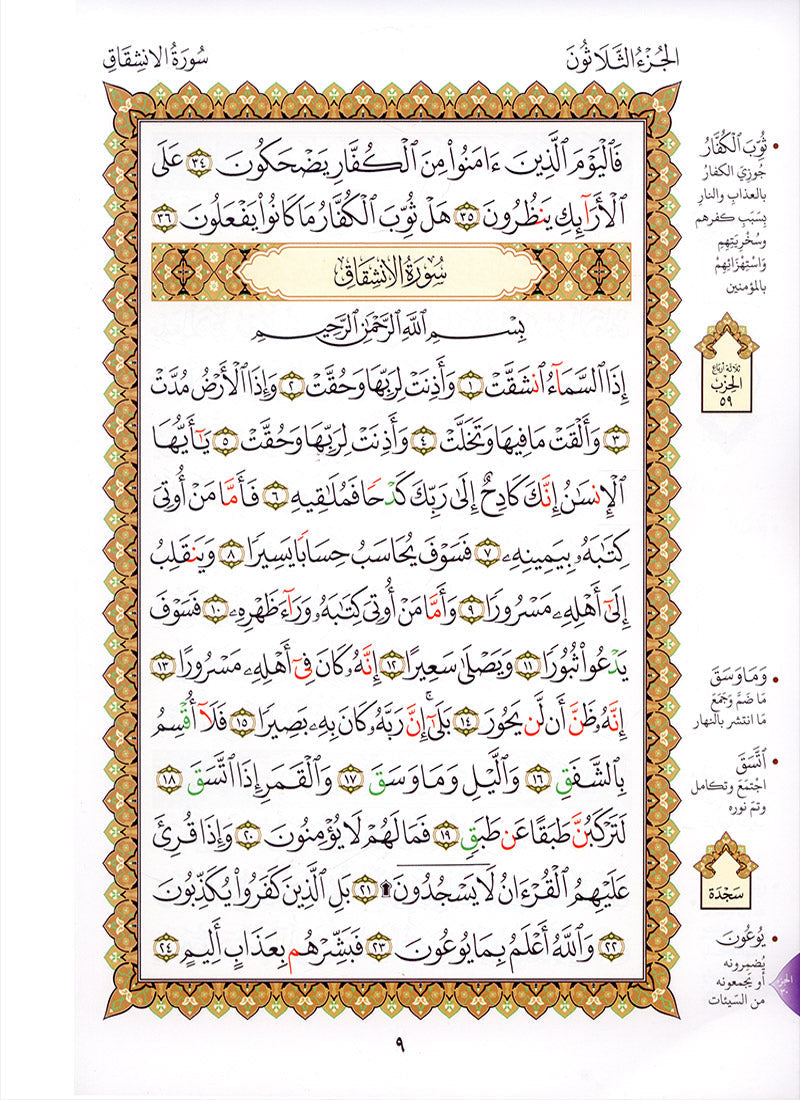 الجُزْءُ الثَّلَاثُونَ
سُورَةُ الانشِقَاقِ
فَٱلْيَوْمَ ٱلَّذِينَ ءَامَنُوا۟ مِنَ ٱلْكُفَّارِ يَضْحَكُونَ ٣٤ عَلَى
ٱلْأَرَآئِكِ يَنظُرُونَ ٣٥ هَلْ ثُوِّبَ ٱلْكُفَّارُ مَا كَانُوا۟ يَفْعَلُونَ ٣٦
سُورَةُ الانشِقَاقِ
بِسْمِ ٱللَّهِ ٱلرَّحْمَٰنِ ٱلرَّحِيمِ
إِذَا ٱلسَّمَآءُ ٱنشَقَّتْ ١ وَأَذِنَتْ لِرَبِّهَا وَحُقَّتْ ٢ وَإِذَا ٱلْأَرْضُ مُدَّتْ
٣ وَأَلْقَتْ مَا فِيهَا وَتَخَلَّتْ ٤ وَأَذِنَتْ لِرَبِّهَا وَحُقَّتْ ٥ يَٰٓأَيُّهَا
ٱلْإِنسَٰنُ إِنَّكَ كَادِحٌ إِلَىٰ رَبِّكَ كَدْحًا فَمُلَٰقِيهِ ٦ فَأَمَّا مَنْ أُوتِىَ
كِتَٰبَهُۥ بِيَمِينِهِۦ ٧ فَسَوْفَ يُحَاسَبُ حِسَابًا يَسِيرًا ٨ وَيَنقَلِبُ
إِلَىٰٓ أَهْلِهِۦ مَسْرُورًا ٩ وَأَمَّا مَنْ أُوتِىَ كِتَٰبَهُۥ وَرَآءَ ظَهْرِهِۦ ١٠ فَسَوْفَ
يَدْعُوا۟ ثُبُورًا ١١ وَيَصْلَىٰ سَعِيرًا ١٢ إِنَّهُۥ كَانَ فِىٓ أَهْلِهِۦ مَسْرُورًا ١٣
إِنَّهُۥ ظَنَّ أَن لَّن يَحُورَ ١٤ بَلَىٰٓ ۚ إِنَّ رَبَّهُۥ كَانَ بِهِۦ بَصِيرًا ١٥ فَلَآ أُقْسِمُ
بِٱلشَّفَقِ ١٦ وَٱلَّيْلِ وَمَا وَسَقَ ١٧ وَٱلْقَمَرِ إِذَا ٱتَّسَقَ ١٨
لَتَرْكَبُنَّ طَبَقًا عَن طَبَقٍ ١٩ فَمَا لَهُمْ لَا يُؤْمِنُونَ ٢٠ وَإِذَا قُرِئَ
عَلَيْهِمُ ٱلْقُرْءَانُ لَا يَسْجُدُونَ ۩ ٢١ بَلِ ٱلَّذِينَ كَفَرُوا۟ يُكَذِّبُونَ
٢٢ وَٱللَّهُ أَعْلَمُ بِمَا يُوعُونَ ٢٣ فَبَشِّرْهُم بِعَذَابٍ أَلِيمٍ ٢٤
• ثُوِّبَ ٱلْكُفَّارُ
جُوزِيَ الكفارُ
بالعذابِ والنارِ
بِسَبَبِ كفرهم
وسُخْرِيَتِهِم
وَاسْتِهْزَائِهِمْ
بالمؤمنين
ثلاثة أرباع
الحِزْب
٥٩
• وَمَا وَسَقَ
مَا ضَمَّ وَجَمَعَ
مَا انتشر بالنهار
• ٱتَّسَقَ
اجْتمَعَ وتكامل
وتمَ نوره
سَجْدَة
• يُوعُونَ
يُضمِرونه
أو يَجمعونه
من السَيئات
الجزء
٣٠
٩